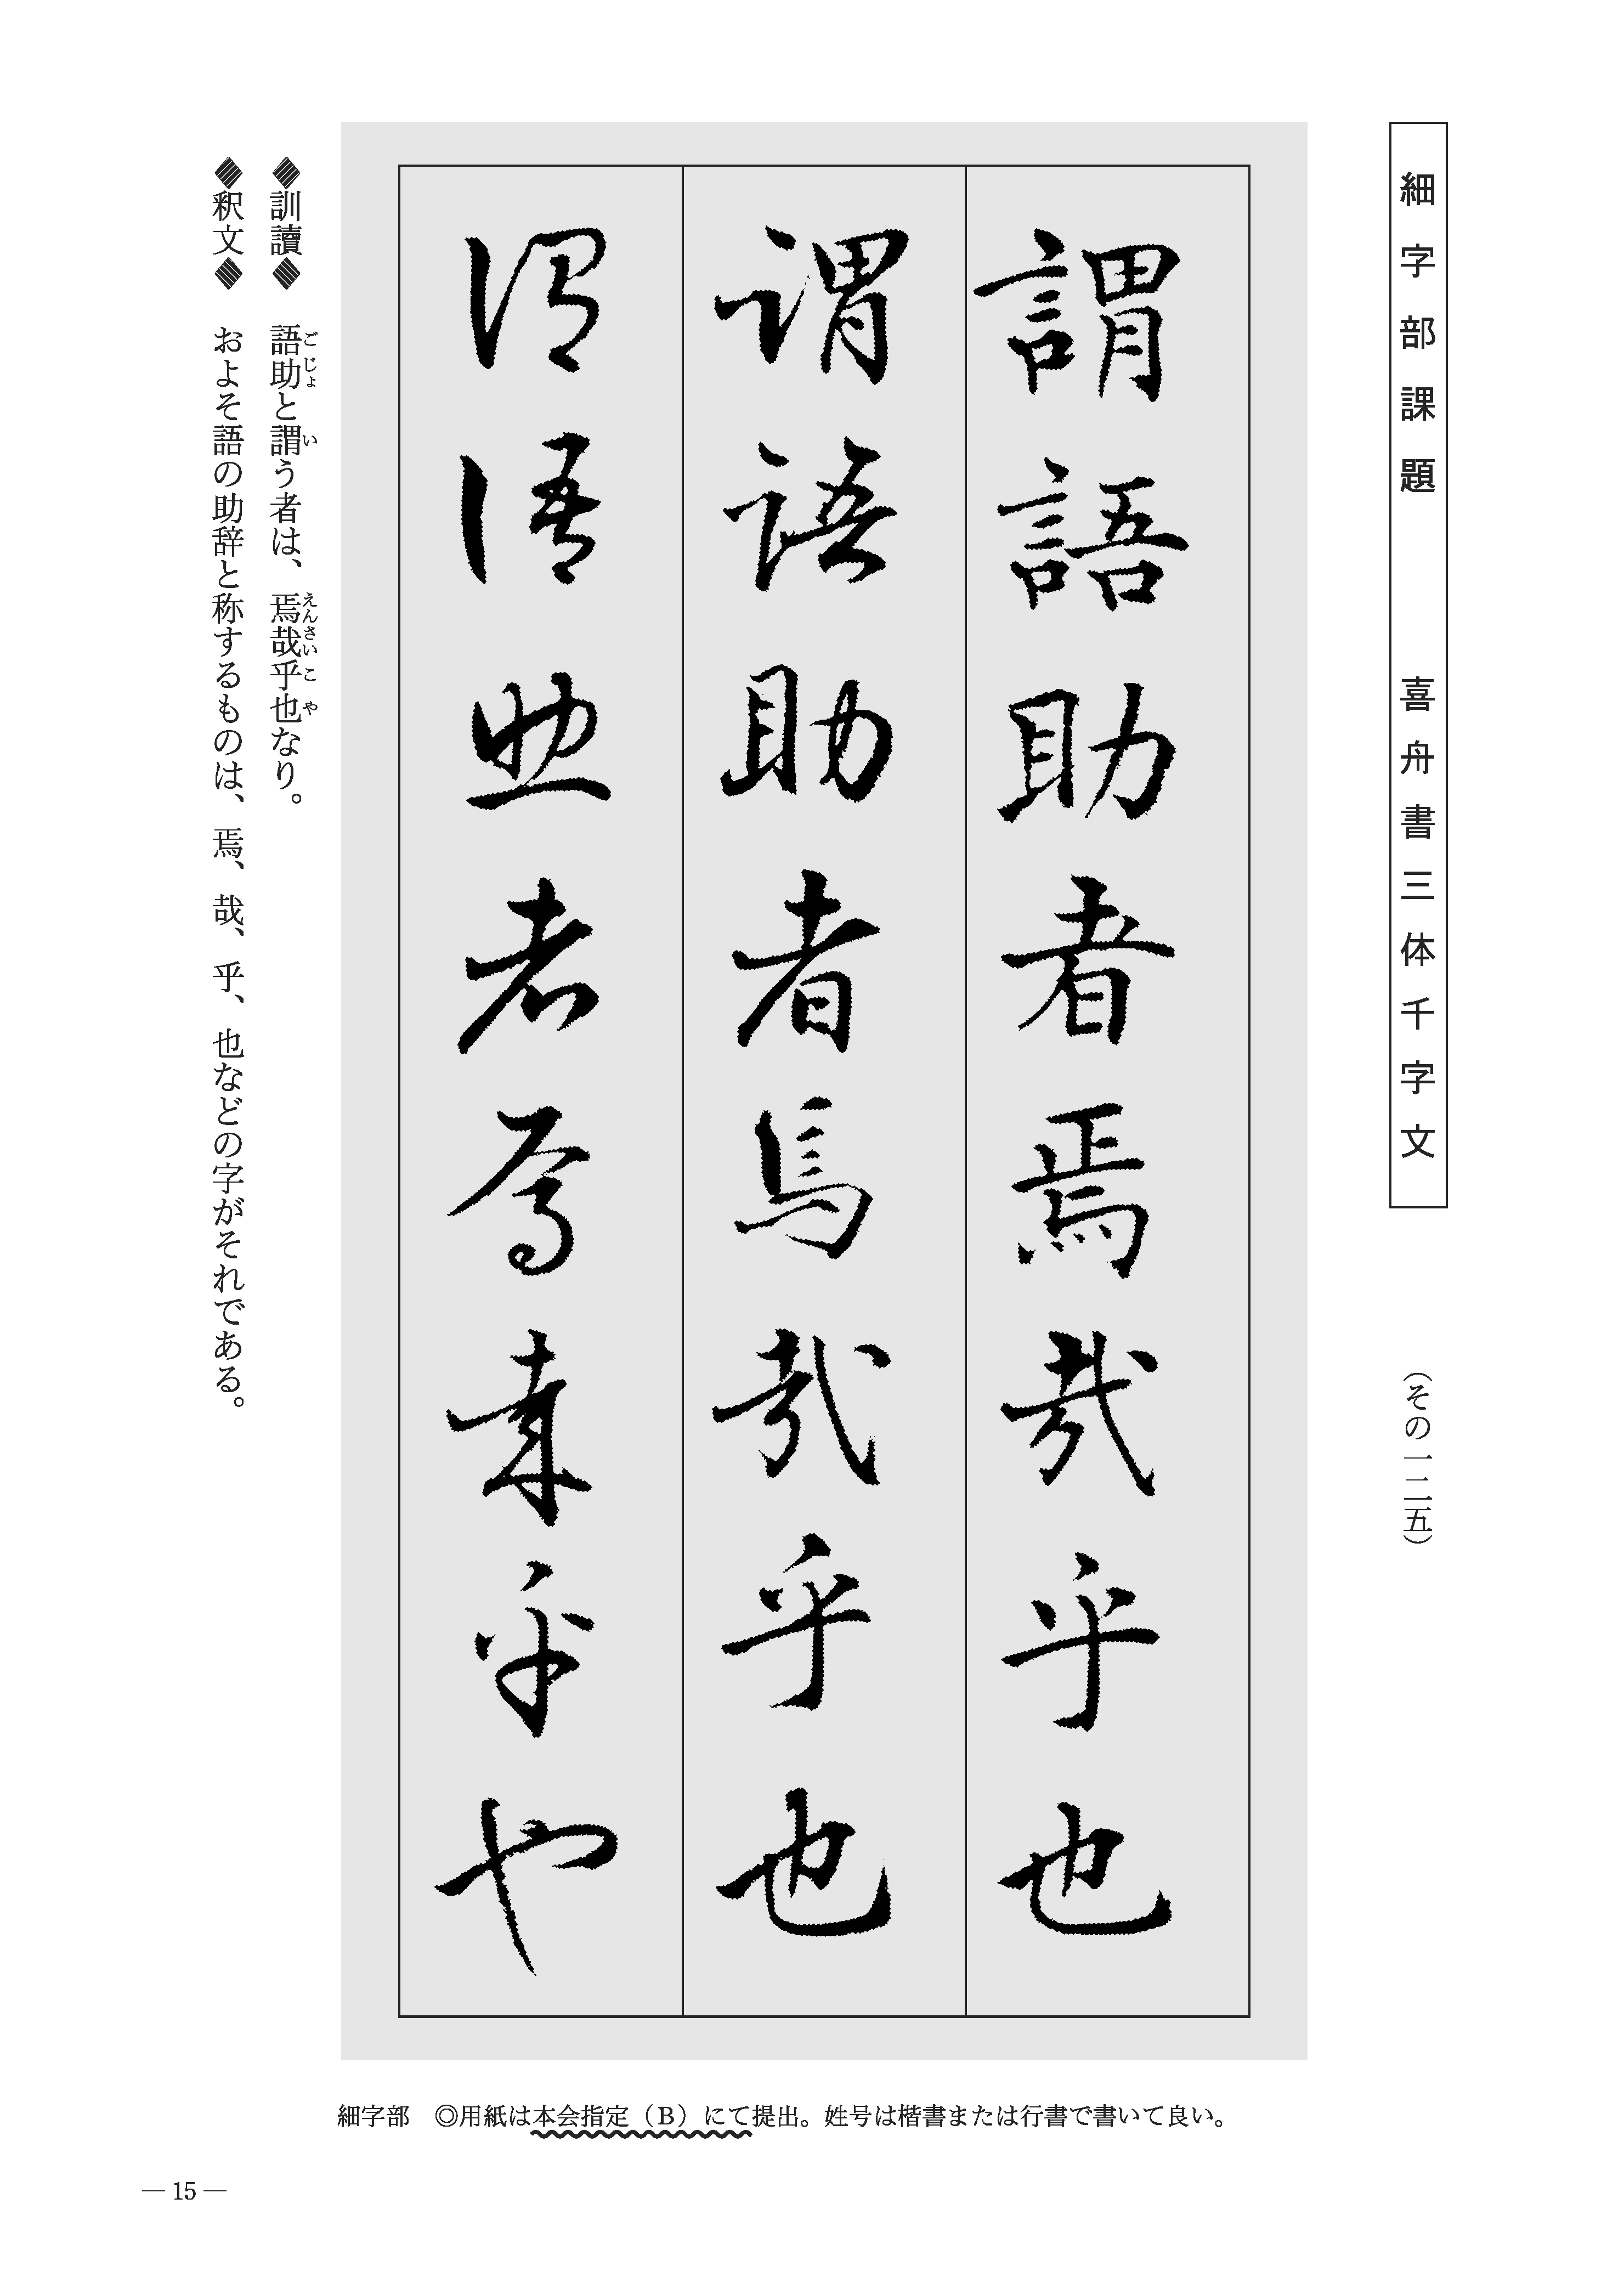 細字部課題　喜舟書三体千字文
（その一二五）
謂語助者焉哉乎也
謂語助者焉哉乎也
謂語助者焉哉乎也
◆訓讀◆　語助と謂う者は、焉哉乎也なり。
ごじょ　い　えんさいこや
◆釈文◆　およそ語の助辞と称するものは、焉、哉、乎、也などの字がそれである。
細字部　◎用紙は本会指定（B）にて提出。姓号は楷書または行書で書いて良い。
— 15 —